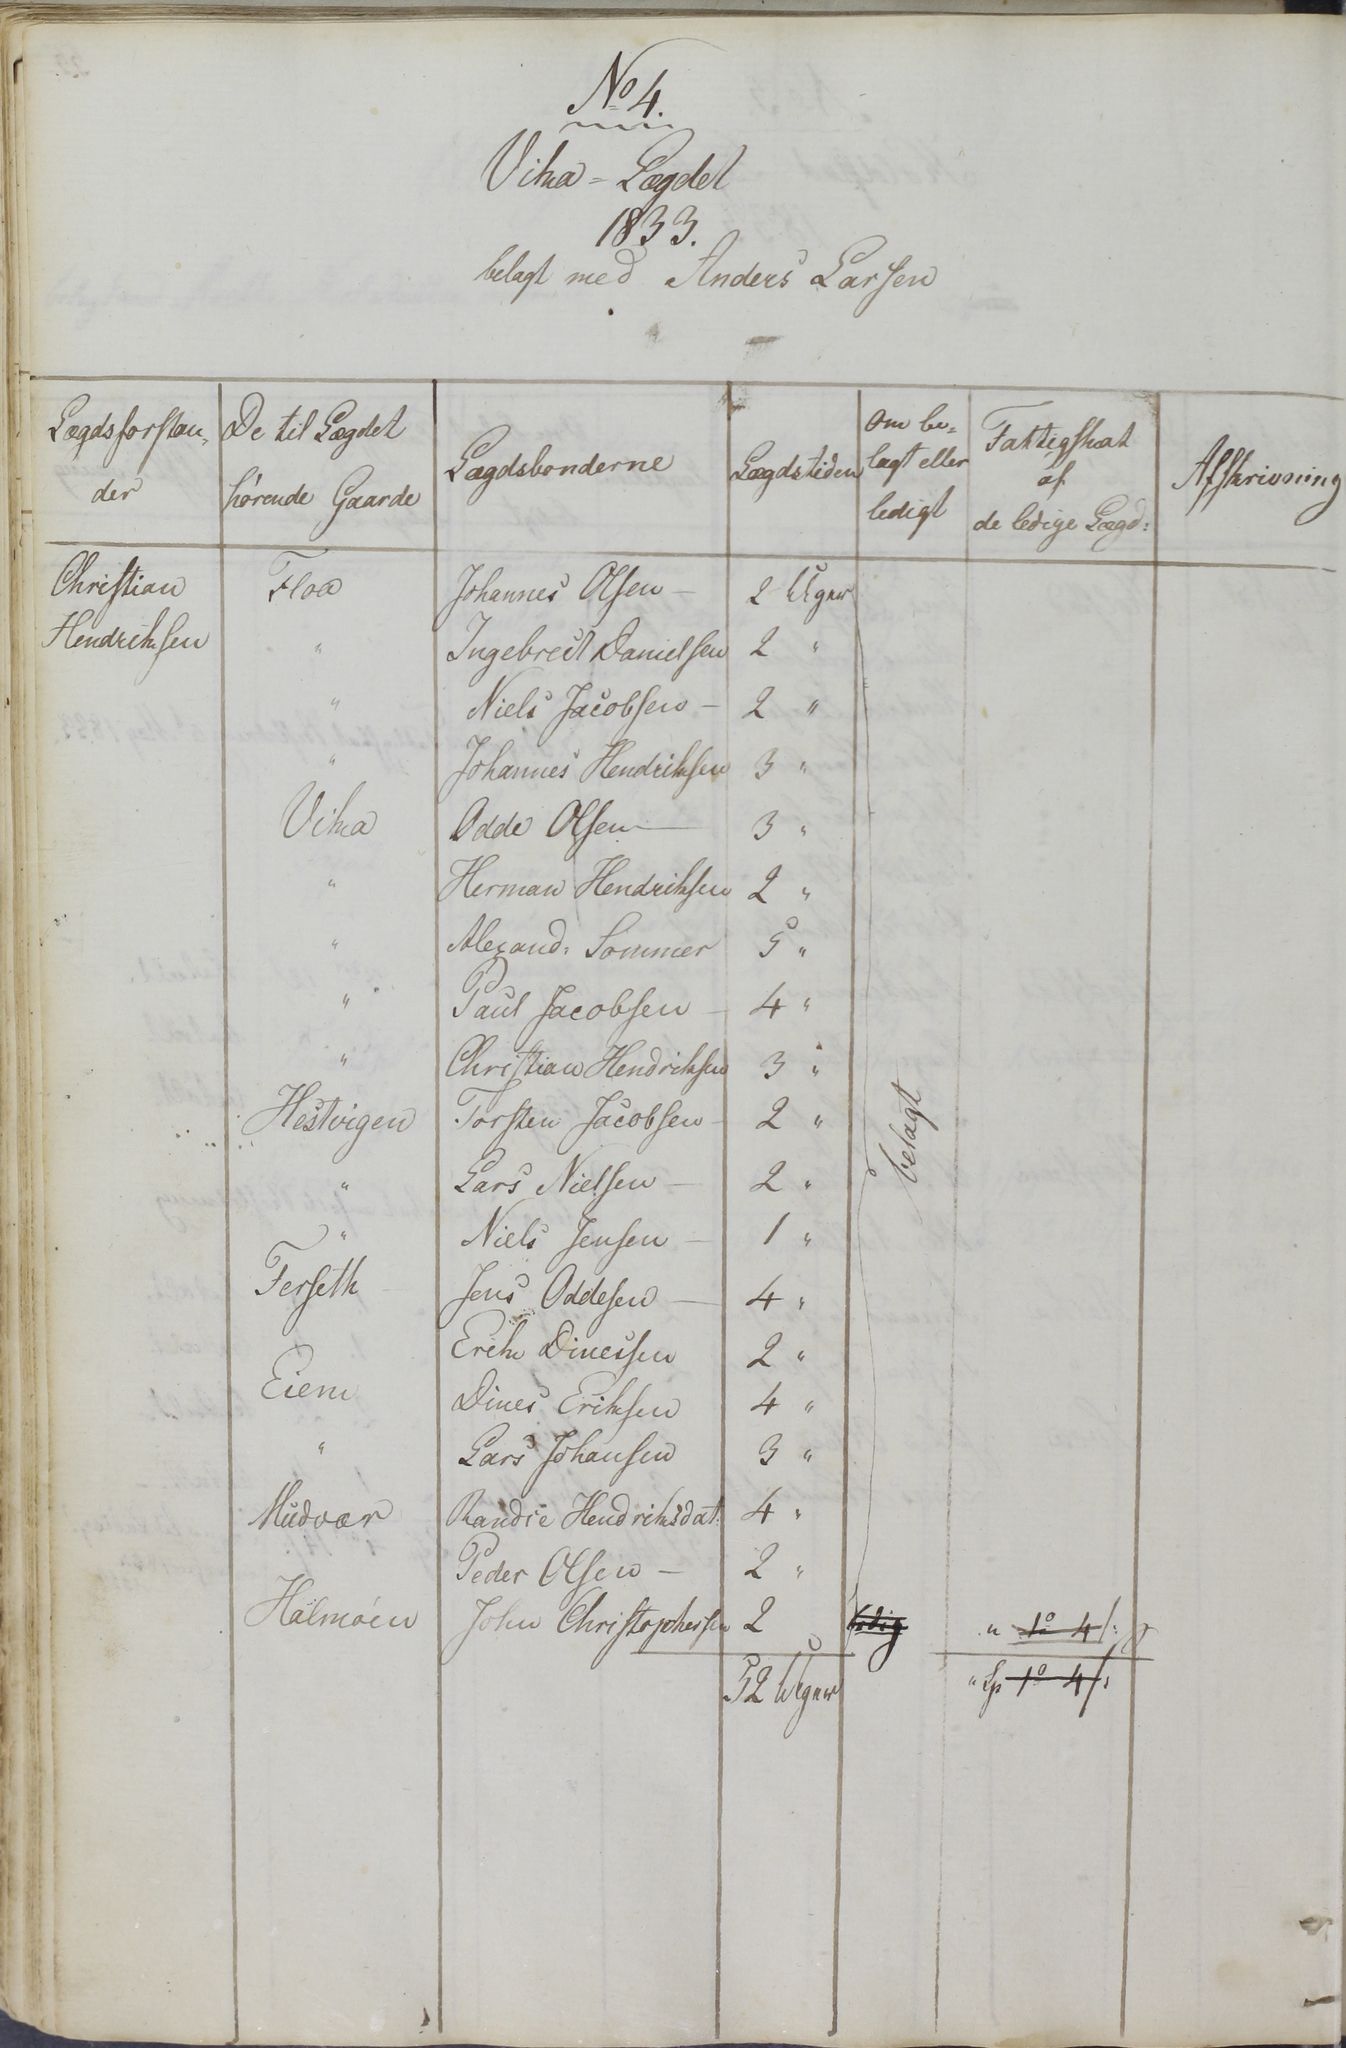 No 4.
Vika - Lægdet
1833.
belagt med Anders Larsen
Lægdsforstan, der | De til Lægdet hørende Gaarde | Lægdsbonderne | Lægdstiden | Om be- lagt eller ledigt | Fattigskat af de ledige Lægd: | Afskrivning
Christian | Floa | Johannes Olsen — | 2 Uger
Hendriksen | " | Ingebregt Danielsen | 2 "
" | Niels Jacobsen — | 2 "
" | Johannes Hendriksen | 3 "
Vika | Odde Olsen — | 3 "
" | Herman Hendriksen | 2 "
" | Alexand: Sommer | 5 "
" | Paul Jacobsen — | 4 "
" | Christian Hendriksen | 3 "
Hestvigen | Torsten Jacobsen — | 2 " | belagt
" | Lars Nielsen — | 2 "
" | Niels Jensen — | 1 "
Ferseth — | Jens Oddesen — | 4 "
Erik Dinessen | 2 "
Eiem | Dines Eriksen | 4 "
" | Lars Johansen | 3 "
Mudvær | Randie Hendriksdat: | 4 "
Peder Olsen — | 2 "
Halmøen | John Christophersen | 2 | ledig | " 1o 4 s:
52 Uger | " Sp 1o 4 s: